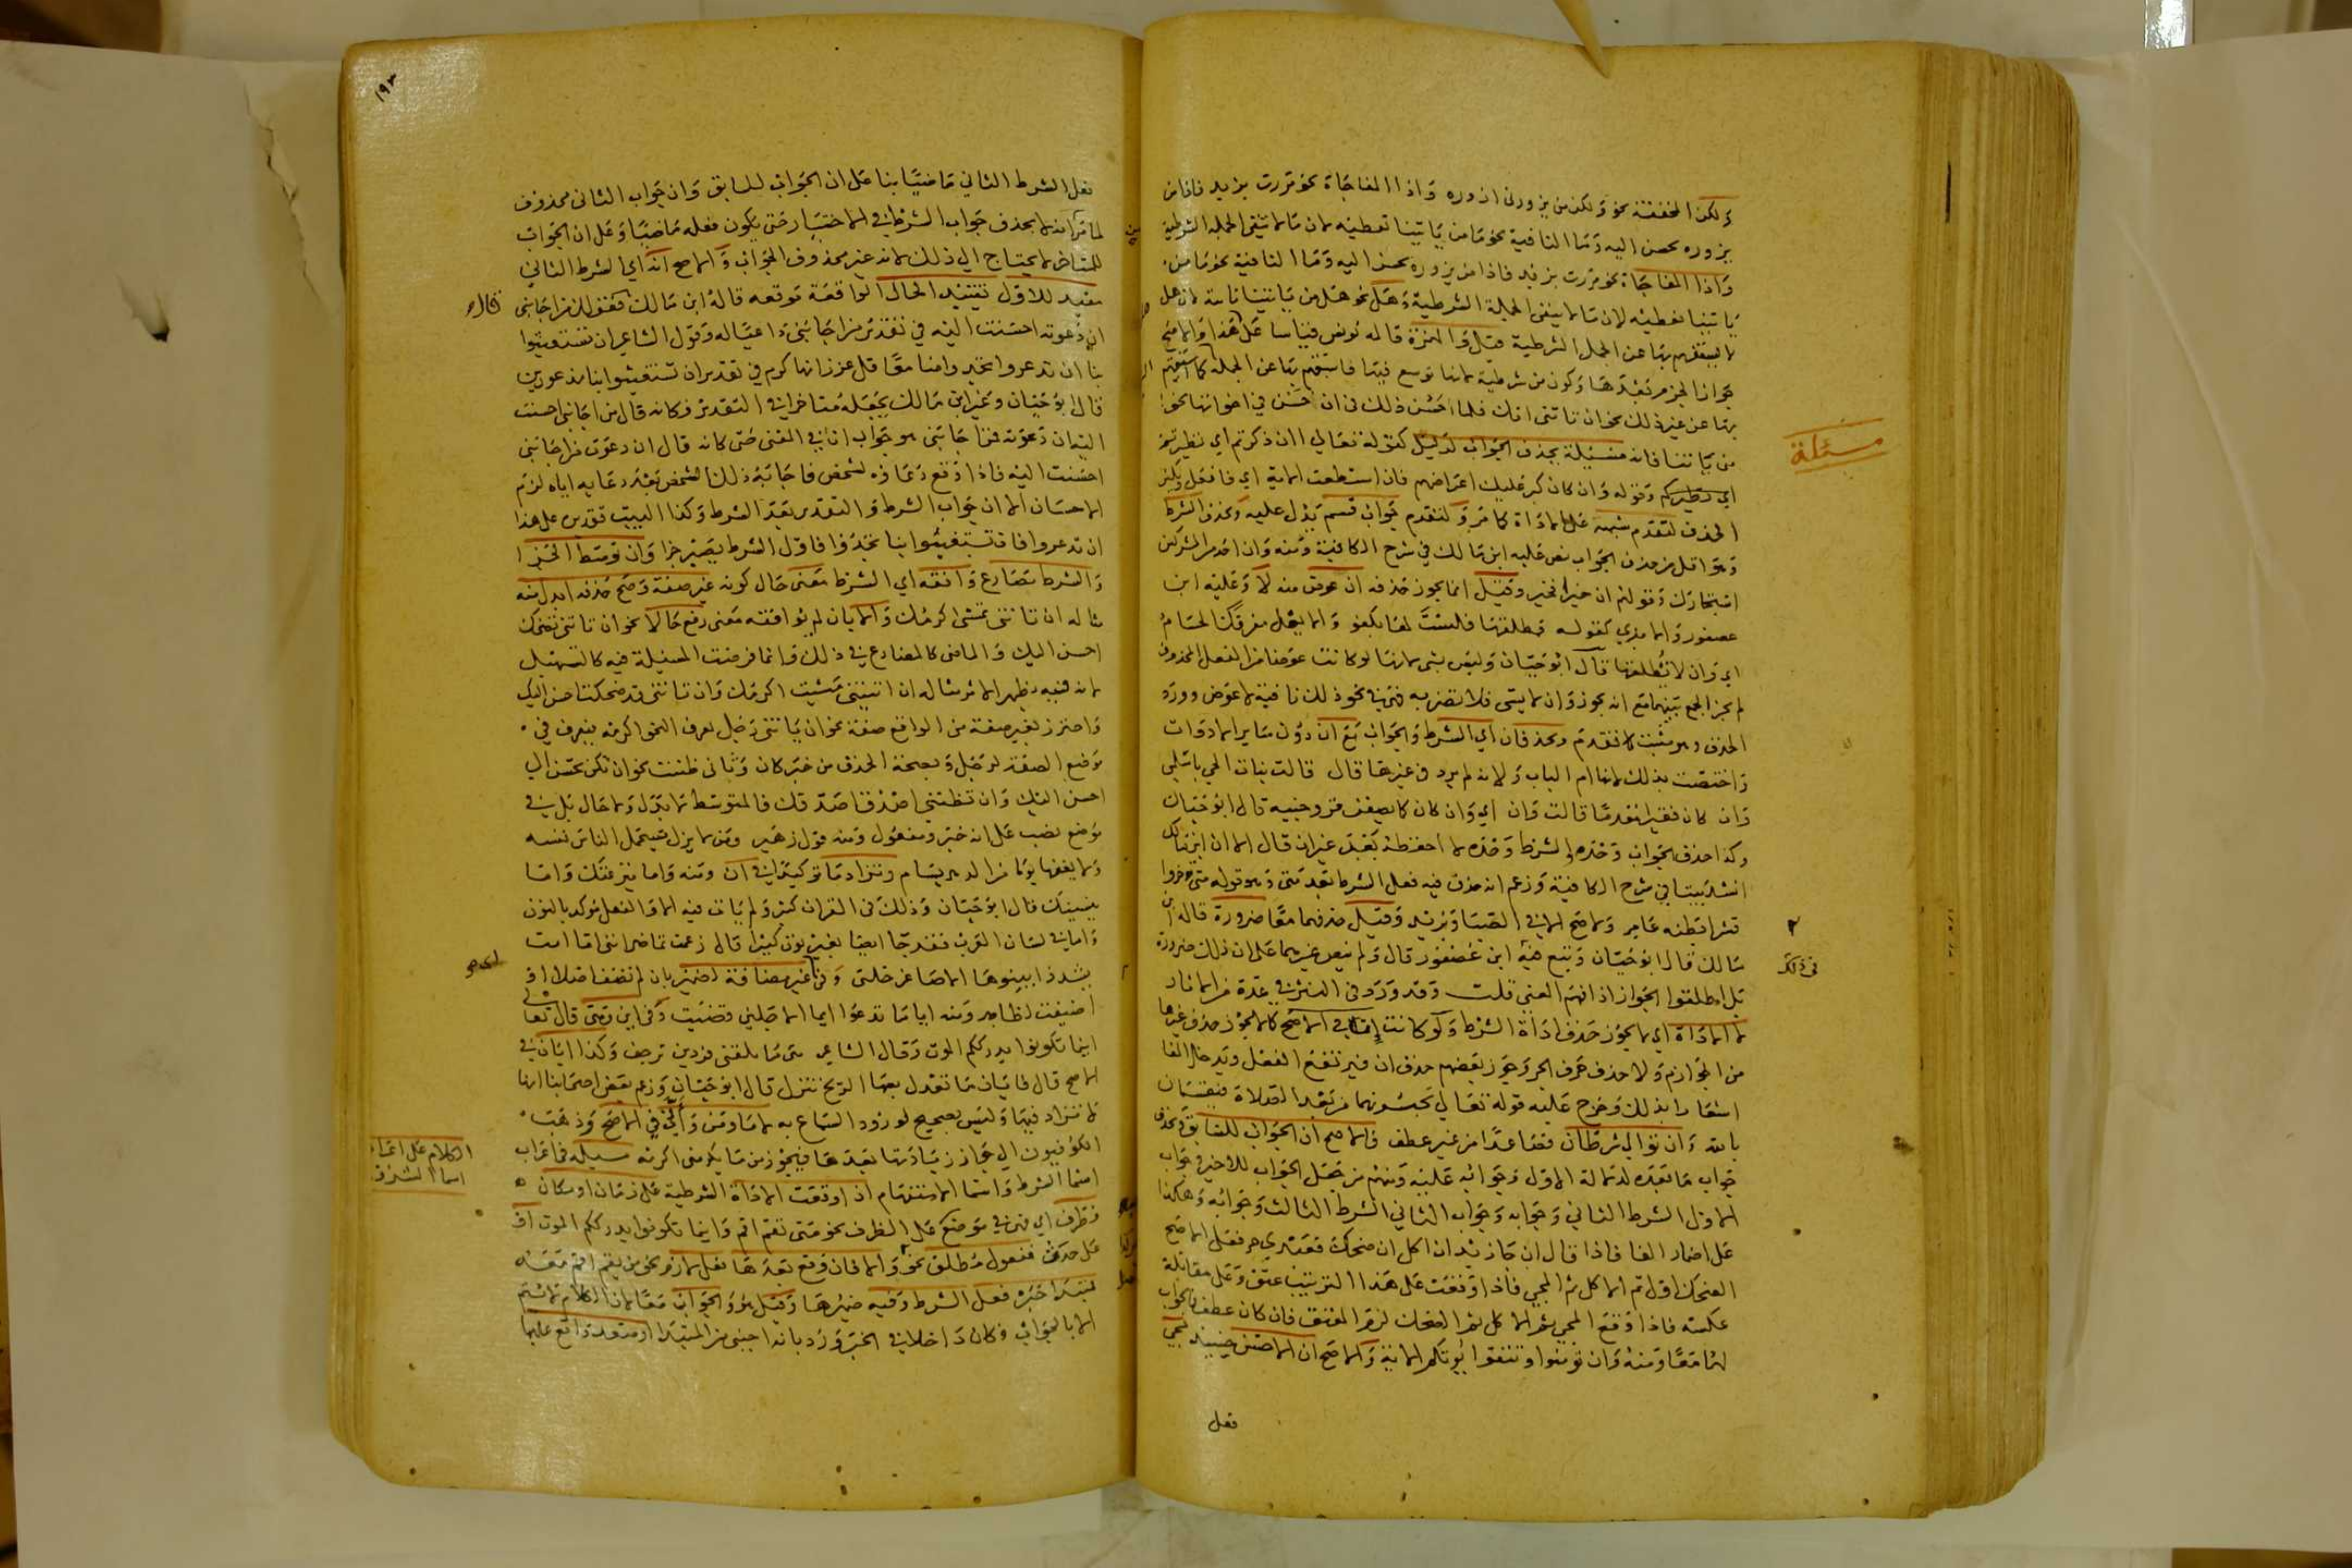 ولكن المخففة نحو ولكن من يزورني ازوره واذا المفاجاة نحو مررت بزيد فاذا من
يزوره يحسن اليه وما النافية نحو ما من ياتينا نعطيه لان ما لا تنفي الجملة الشرطية
واذا المفاجاة نحو مررت بزيد فاذا من يزوره يحسن اليه وما النافية نحو ما من
ياتينا نعطيه لان ما لا ينفى الجملة الشرطية وهل نحو هل من ياتينا ناته لان هل
لا يستفهم بها عن الجمل الشرطية قيل والهمزة قاله يونس قياسا على هذا والاصح
جواز الجزم بعدها وكون من شرطية لانها توسع فيها فاستفهم بها عن الجملة كما استفهم
بها عن غير ذلك نحو ان تاتني اتك فلما حسن ذلك في ان حسن في اخواتها نحو
من ياتنا فاته مسئلة يحذف الجواب لدليل كقوله تعالى اان ذكرتم اي تطيرتم
وقوله وان كان كبر عليك اعراضهم فان استطعت الاية اي فافعل ويكثر
الحذف لتقدم شبهه على الاداة كما مر ولتقدم جواب قسم يدل عليه ويحذف الشرط
وهو اقل من حذف الجواب نص عليه ابن مالك في شرح الكافية ومنه وان احد من المشركين
استجارك وقولهم ان خيرا فخير وقيل انما يجوز حذفه ان عوض منه لا وعليه ابن
عصفور والابدي كقوله فطلقها فلست لها بكفو والا يعل مفرقك الحسام
اي وان لا تطلقها قال ابو حيان وليس بشي لانها لو كانت عوضا من الفعل المحذوف
لم يجز الجمع بينهما مع انه يجوز وان لا يسئ فلا تضربه فهي في نحو ذلك نافية لا عوض وورد
الحذف وهو مثبت كما تقدم ويحذفان اي الشرط والجواب مع ان دون سائر الادوات
واختصت بذلك لانها ام الباب ولانه لم يرد في غيرها قال قالت بنات العم يا سلمى
وان كان فقيرا معدما قالت وان اي وان كان كما يصف فزوجنيه قال ابو حيان
وكذا حذف الجواب وحده والشرط وحده لا احفظه بعد غير ان قال الا ان ابن مالك
انشد بيتا في شرح الكافية وزعم انه حذف فيه فعل الشرط بعد متى وهو قوله متى تؤخذوا
قسرا بظنة عامر ولا ينج الا في الصفاد يزيد وقيل حذفهما معا ضرورة قاله ابن
مالك قال ابو حيان وتبع فيه ابن عصفور قال ولم ينص غيرهما على ان ذلك ضرورة
بل اطلقوا الجواز اذا فهم المعنى قلت وقد ورد في النثر في عدة من الاثار
لا الاداة اي لا يجوز حذف اداة الشرط ولو كانت ان في الاصح كما لا يجوز حذف غيرها
من الجوازم ولا حذف حرف الجر وجوز بعضهم حذف ان فيرتفع الفعل وتدخل الفا
اشعارا بذلك وخرج عليه قوله تعالى تحبسونهما من بعد الصلاة فيقسمان
بالله وان توالى شرطان فصاعدا من غير عطف فالاصح ان الجواب للسابق ويحذف
جواب ما بعده لدلالة الاول وجوابه عليه ومنهم من جعل الجواب للاخير وجواب
الاول الشرط الثاني وجوابه وجواب الثاني الشرط الثالث وجوابه وهكذا
على اضمار الفا فاذا قال ان جا زيد ان اكل ان ضحك فعبدي حر فعلى الاصح
الضحك اول ثم الاكل ثم المجي فاذا وقعت على هذا الترتيب عتق وعلى مقابله
عكسه فاذا وقع المجي ثم الاكل ثم الضحك لزم العتق فان كان عطف فالجواب
لهما معا ومنه وان تؤمنوا وتتقوا يؤتكم الاية والاصح ان الاحسن حينيذ مجي
فعل
مسئلة
في ذلك
١٩٣
فعل الشرط الثاني ماضيا بنا على ان الجواب للسابق وان جواب الثاني محذوف
لما مر انه لا يحذف جواب الشرط في الاختيار حتى يكون فعله ماضيا وعلى ان الجواب
للمتاخر لا يحتاج الى ذلك لانه غير محذوف الجواب والاصح انه اي الشرط الثاني
مقيد للاول تقييد الحال الواقعة موقعه قاله ابن مالك فقولك من اجابني
ان دعوته احسنت اليه في تقدير من اجابني داعيا له وقول الشاعر ان تستغيثوا
بنا ان تدعروا تجدوا منا معاقل عز زانها كرم في تقدير ان تستغيثوا بنا مذعورين
قال ابو حيان وغير ابن مالك يجعله متاخرا في التقدير فكانه قال من اجابني احسنت
اليه ان دعوته فمن اجابني هو جواب ان في المعنى حتى كانه قال ان دعوت من اجابني
احسنت اليه فاذا وقع دعاؤه لشخص فاجابه ذلك الشخص بعد دعايه اياه لزم
الاحسان الا ان جواب الشرط والتقدير بعد الشرط وكذا البيت تقديره على هذا
ان تدعروا فان تستغيثوا بنا تجدوا فاول الشرط يصير جزا وان توسط الجزا
والشرط مضارع وافقه اي الشرط معنى حال كونه غير صفة وصح حذفه ابدل منه
مثاله ان تاتني تمشي اكرمك والا بان لم يوافقه معنى رفع حالا نحو ان تاتني تضحك
احسن اليك والماضي كالمضارع في ذلك وانما فرضت المسئلة فيه كالتسهيل
لانه فيه يظهر الاثر مثاله ان اتيتني مشيت اكرمك وان تاتني قد ضحكت احسن اليك
واحترز بغير صفة من الواقع صفة نحو ان ياتني رجل يعرف النحو اكرمه فيعرف في
موضع الصفة لرجل وبصحة الحذف من خبر كان وثاني ظننت نحو ان تكن تحسن الي
احسن اليك وان تظنني اصدق اصدقك فالمتوسط لا بدل ولا حال بل في
موضع نصب على انه خبر ومفعول ومنه قول زهير ومن لا يزل يستحمل الناس نفسه
ولا يغنها يوما من الدهر يسام وتزاد ما توكيدا في ان ومنه واما ينزغنك واما
ينسينك قال ابو حيان وذلك في القران كثير ولم يات فيه الا والفعل مؤكد بالنون
واما في لسان العرب فقد جا ايضا بغير نون كثيرا قال زعمت تماضر انني اما امت
يسدد ابينوها الاصاغر خلتي وفي اي غير مضافة لضمير بان لم تضف اصلا او
اضيفت لظاهر ومنه ايا ما تدعوا ايما الاجلين قضيت وفي اين ومتى قال تعالى
اينما تكونوا يدرككم الموت وقال الشاعر متى ما يلقني فردين ترجف وكذا ايان في
الاصح قال فايان ما تعدل بها الريح تنزل قال ابو حيان وزعم بعض اصحابنا انها
لا تزاد فيها وليس بصحيح لورود السماع به لا ما ومن وانى في الاصح وذهب
الكوفيون الى جواز زيادتها بعدها فيجوز من ما يكرمني اكرمه مسئلة في اعراب
اسما الشرط واسما الاستفهام ان وقعت الاداة الشرطية على زمان او مكان
فظرف اي فهي في موضع على الظرف نحو متى تقم اقم واينما تكونوا يدرككم الموت او
على حدث فمفعول مطلق نحو والا فان وقع بعدها فعل لازم نحو من يقم اقم معه
فمبتدا خبره فعل الشرط وفيه ضميرها وقيل هو والجواب معا لان الكلام لا يتم
الا بالجواب فكان داخلا في الخبر ورد بانه اجنبي من المبتدا او متعد واقع عليها
قاله
الكلام على اعراب
اسما الشرط